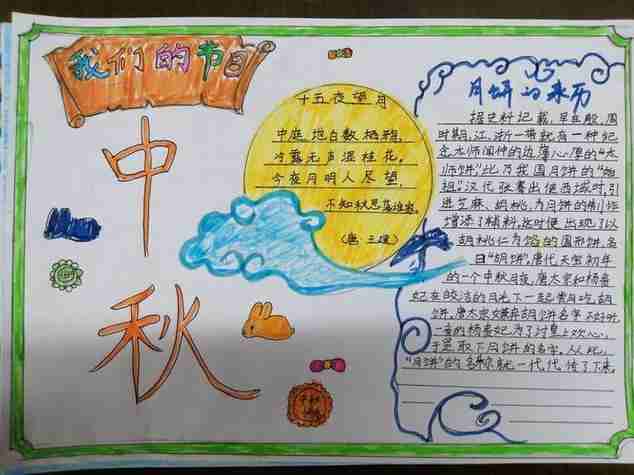 我们的节日
中秋
十五夜望月
中庭地白数栖鸦,
冷露无声湿桂花。
今夜月明人尽望,
不知秋思落谁家。
(唐:王建)
月饼的来历
据史料记载,早在殷、周
时期,江、浙一带就有一种纪
念太师闻仲的边薄心厚的“太
师饼”,此乃我国月饼的“始
祖”。汉代张骞出使西域时,引
进芝麻、胡桃,为月饼的制作
增添了辅料,这时便出现了以
胡桃仁为馅的圆形饼,名
曰“胡饼”。唐代,
的一个中秋月夜,唐太宗和杨贵
妃在皎洁的月光下一起赏月吃胡
饼,唐太宗嫌弃胡饼名字不好听,
一旁的杨贵妃为了讨皇上欢心,
取下月饼的名字,从此,
“月饼”的名称就一代代传了下来。